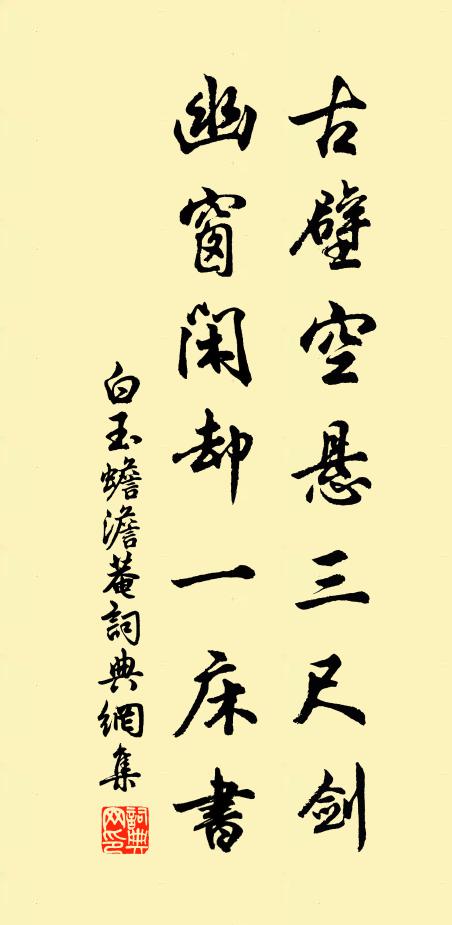 古壁空悬三尺剑
幽窗閑却一床書
白玉蟾澹菴詞典網集
詞典網印